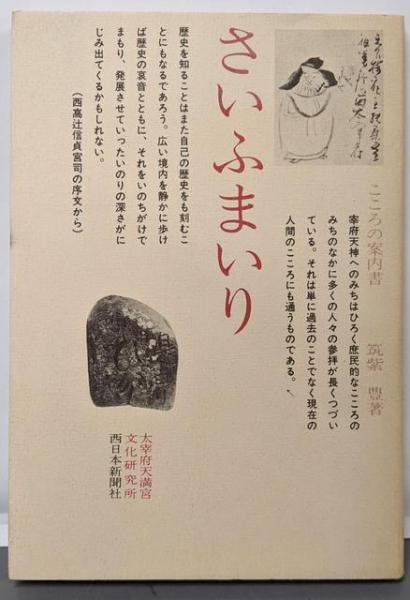 こころの案内書　筑紫　豊著
宰府天神へのみちはひろく庶民的なこころの
みちのなかに多くの人々の参拝が長くつづい
ている。それは単に過去のことでなく現在の
人間のこころにも通うものである。
さいふまいり
歴史を知ることはまた自己の歴史をも刻むこ
とにもなるであろう。広い境内を静かに歩け
ば歴史の哀音とともに、それをいのちがけで
まもり、発展させていったいのりの深さがに
じみ出てくるかもしれない。
（西高辻信貞宮司の序文から）
太宰府天満宮
文化研究所
西日本新聞社